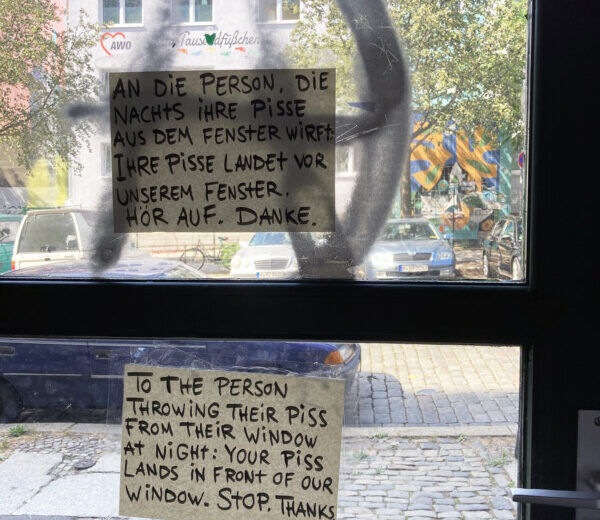 AWO
Tausendfüßchen
AN DIE PERSON, DIE
NACHTS iHRE PiSSE
AUS DEM FENSTER WiRFT:
IHRE PiSSE LANDET VOR
UNSEREM FENSTER.
HÖR AUF. DANKE.
TO THE PERSON
THROWING THEiR PiSS
FROM THEiR WiNDOW
AT NiGHT: YOUR PiSS
LANDS iN FRONT OF OUR
WiNDOW. STOP. THANKS